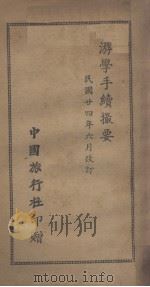 游學手續撮要
民國廿四年六月改訂
中國旅行社印贈
狗
mtoou.info